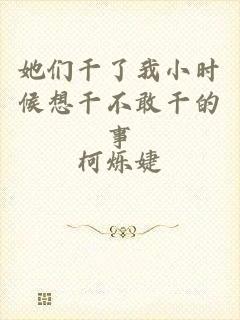 她们干了我小时
候想干不敢干的
事
柯烁婕